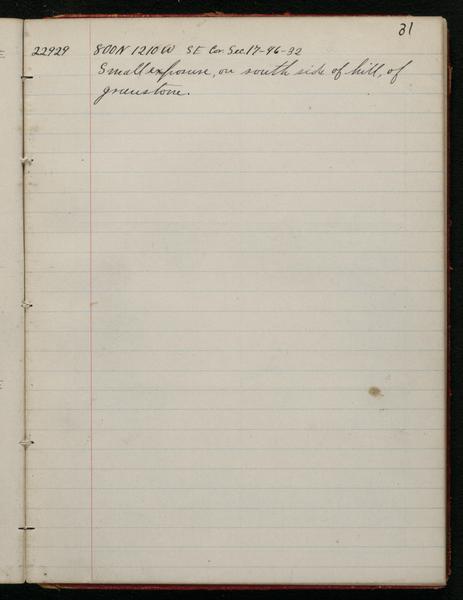 31
22929 800N 1210W SE Cor. Sec. 17-46-32
Small exposure, on south side of hill, of
greenstone.